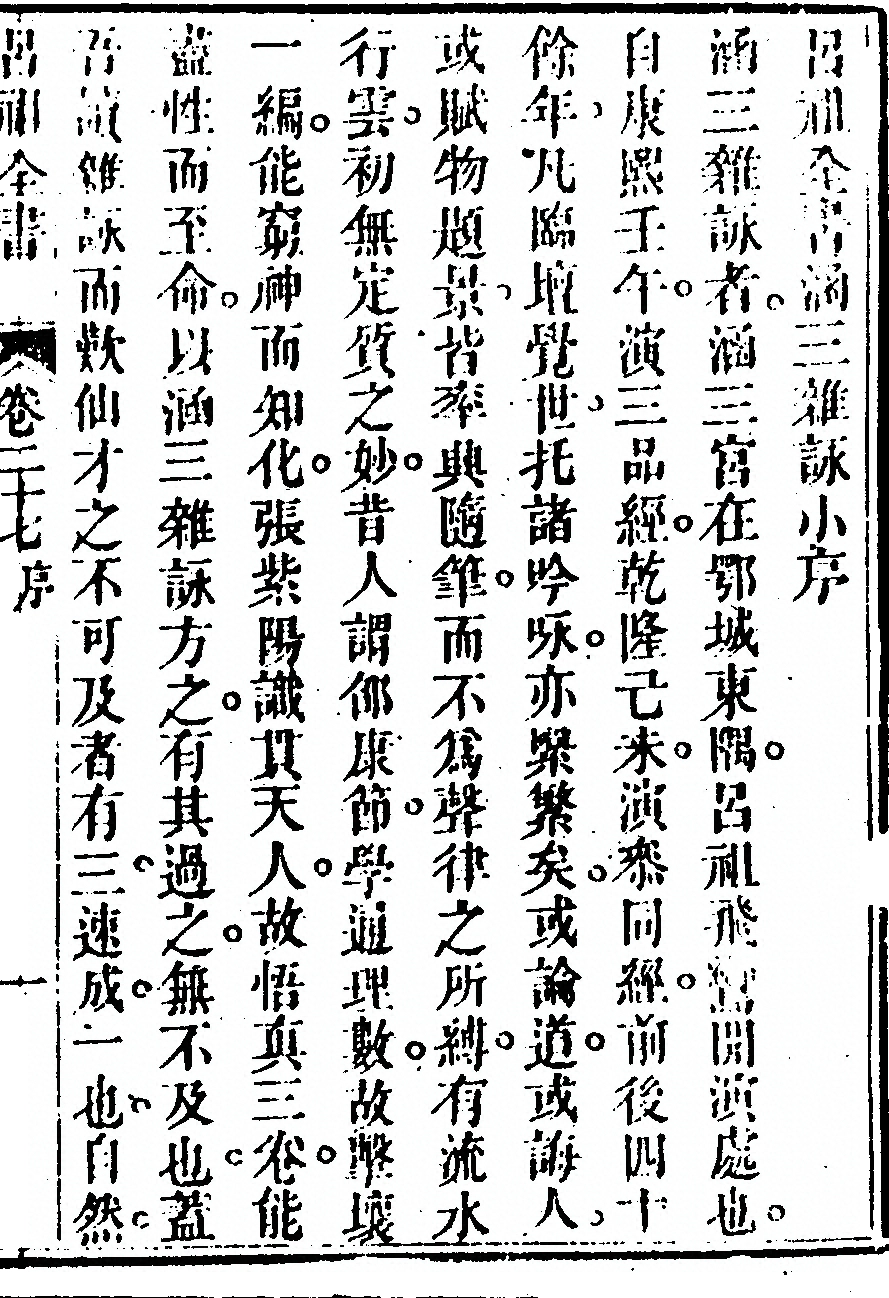 呂祖全書涵三雜詠小序
涵三雜詠者。涵三宮在鄂城東隅。呂祖飛鸞開演處也。
自康熙壬午。演三品經。乾隆己未。演叅同經。前後四十
餘年。凡臨壇覺世。托諸吟咏。亦綦繁矣。或論道。或誨人。
或賦物題景。皆率興隨筆。而不爲聲律之所縛。有流水
行雲。初無定質之妙。昔人謂邵康節。學通理數。故擊壤
一編。能窮神而知化。張紫陽識貫天人。故悟真三卷。能
盡性而至命。以涵三雜詠方之。有其過之。無不及也。蓋
吾讀雜詠而歎仙才之不可及者有三。速成。一也。自然。
呂祖全書 卷二十七 序 一